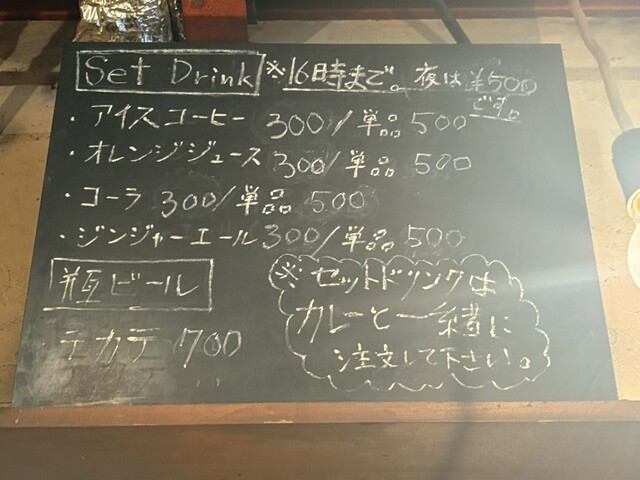 Set Drink ※16時まで。夜は¥500です。
・アイスコーヒー 300/単品 500
・オレンジジュース 300/単品 500
・コーラ 300/単品 500
・ジンジャーエール 300/単品 500
瓶ビール
テカテ 700
※セットドリンクは
カレーと一緒に
注文して下さい。